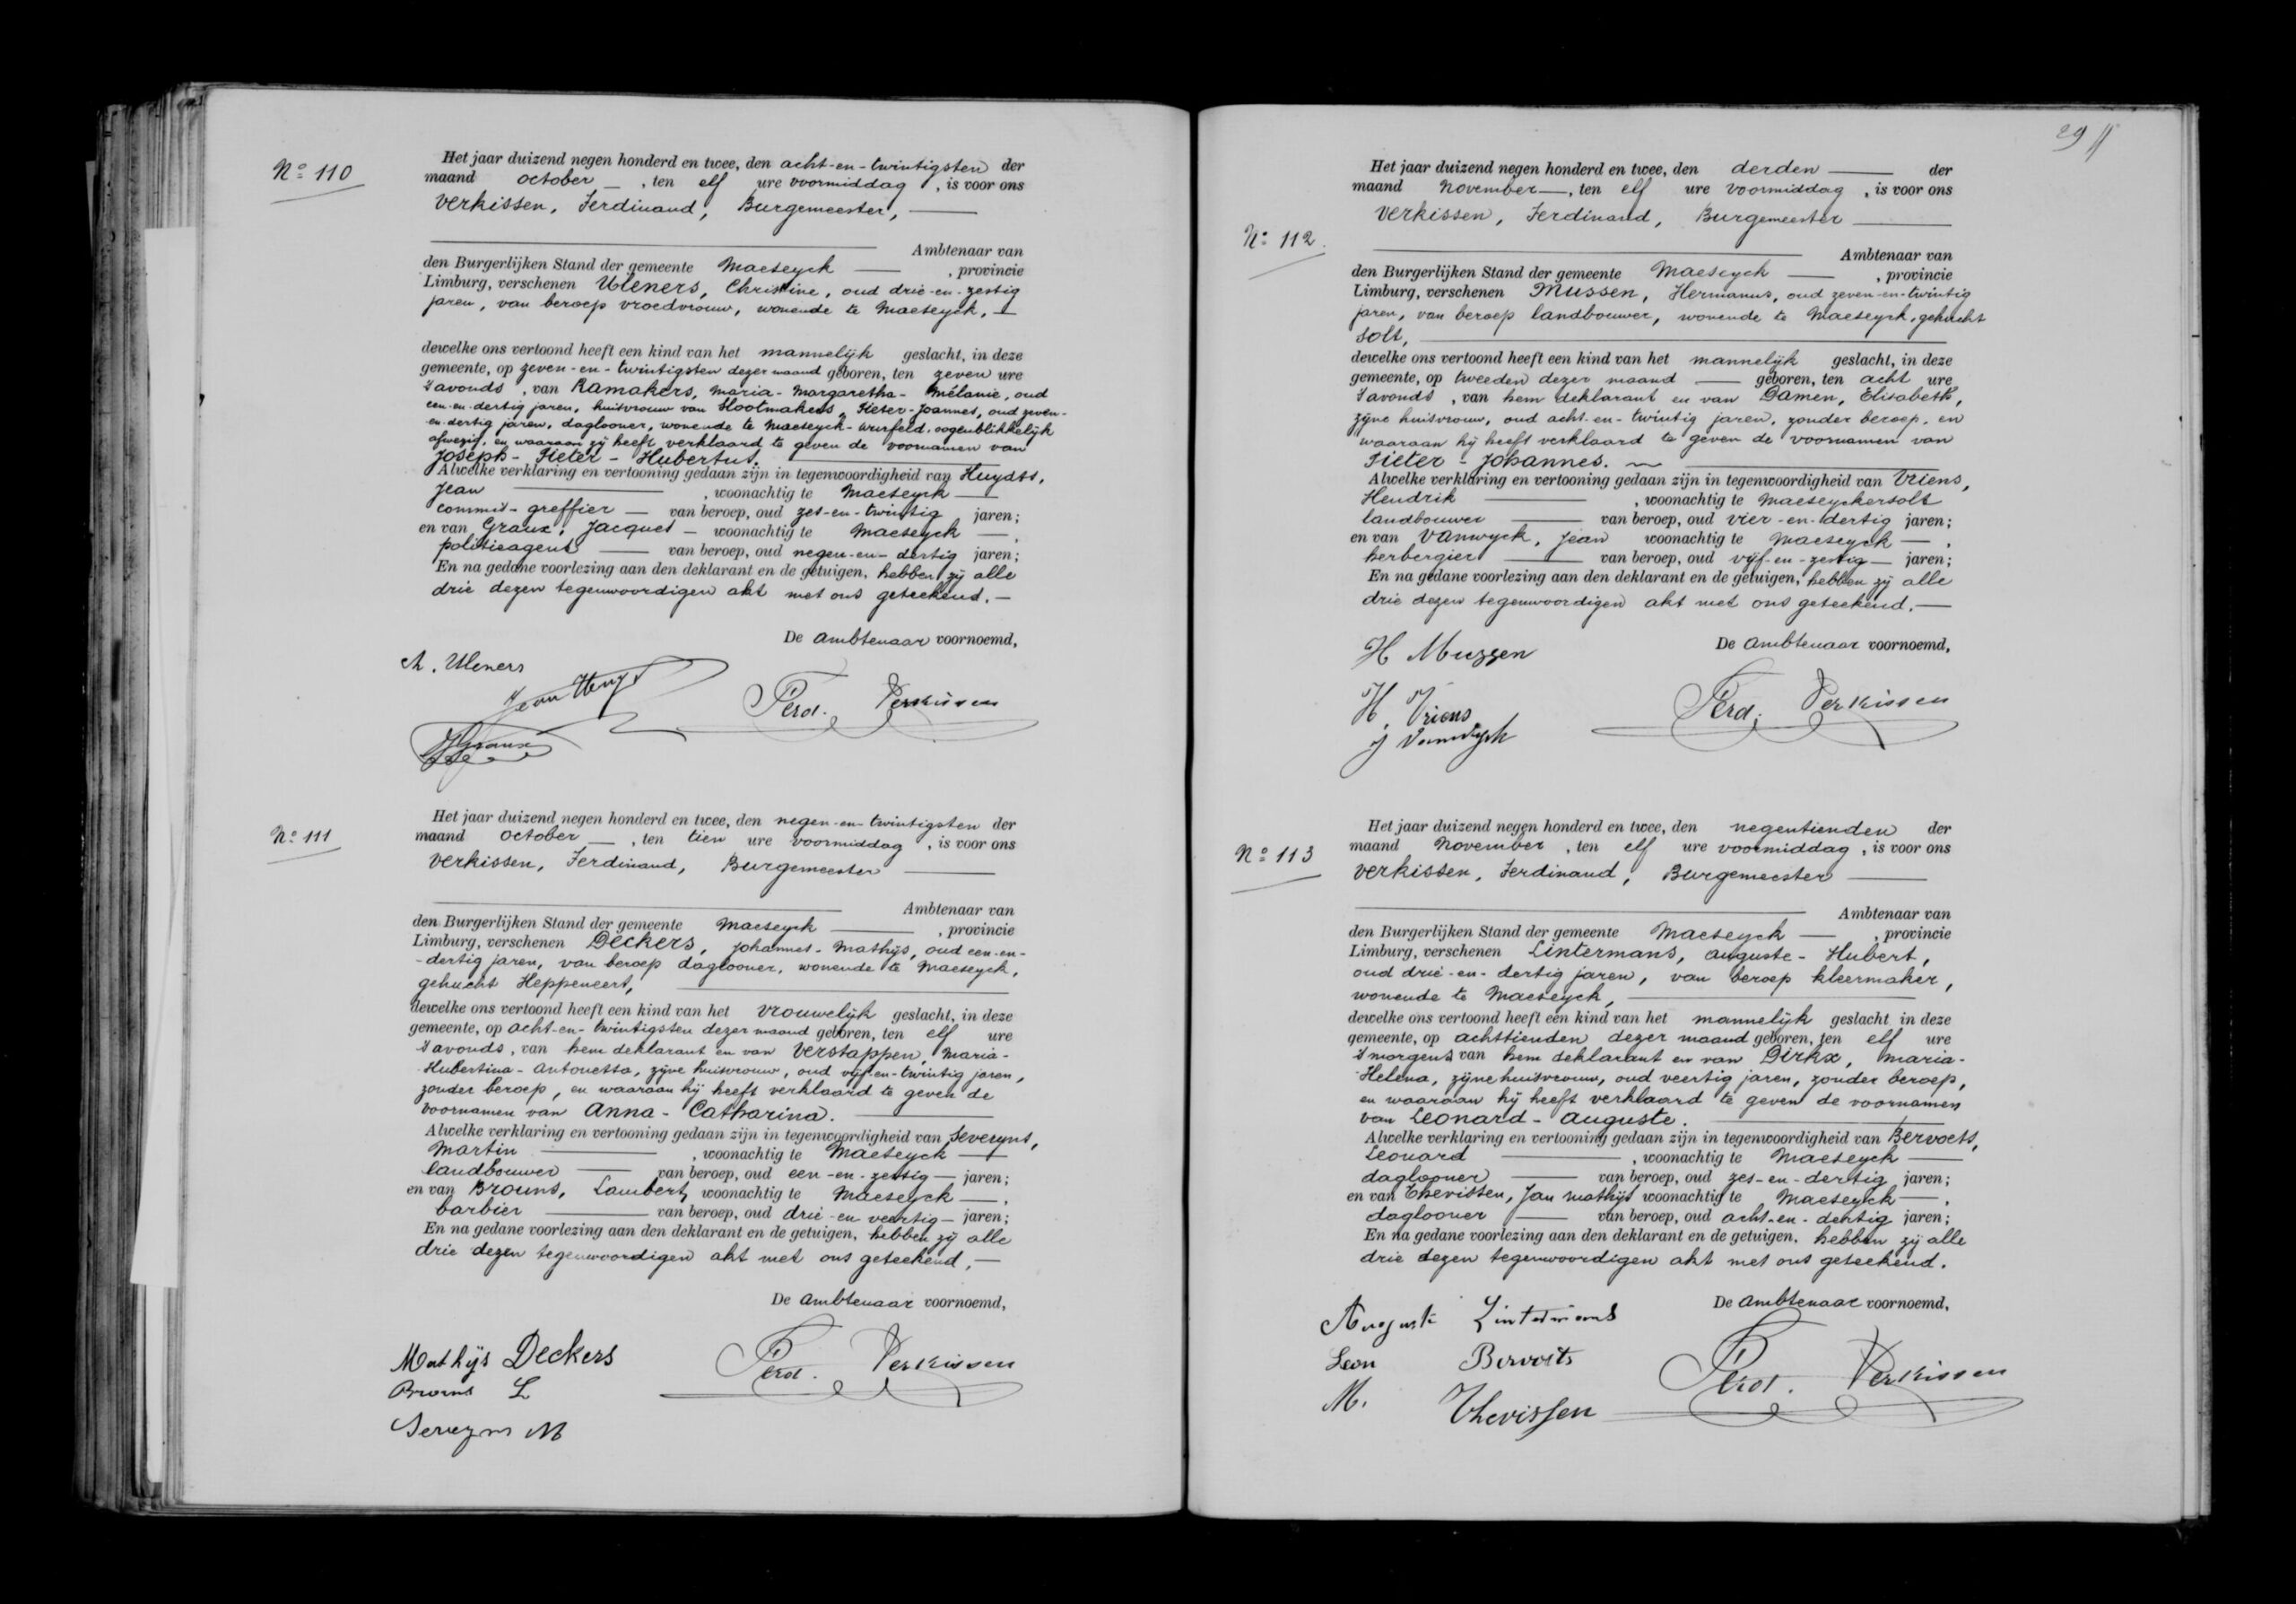 Nº 110
Het jaar duizend negen honderd en twee, den acht-en-twintigsten der
maand october, ten elf ure voormiddag, is voor ons
Verkissen, Ferdinand, Burgemeester,
Ambtenaar van
den Burgerlijken Stand der gemeente Maeseyck, provincie
Limburg, verschenen Uleners, Christine, oud drie-en-zestig
jaren, van beroep vroedvrouw, wonende te Maeseyck,
dewelke ons vertoond heeft een kind van het mannelijk geslacht, in deze
gemeente, op zeven-en-twintigsten dezer maand geboren, ten zeven ure
's avonds, van Ramakers, Maria-Margaretha-Mélanie, oud
een-en-dertig jaren, huisvrouw van Slootmakers, Pieter-Joannes, oud zeven-
en-dertig jaren, daglooner, wonende te Maeseyck-Wurfeld, oogenblikkelijk
afwezig, en waaraan zij heeft verklaard te geven de voornamen van
Joseph-Pieter-Hubertus.
Alwelke verklaring en vertooning gedaan zijn in tegenwoordigheid van Huydts,
Jean, woonachtig te Maeseyck
commis-greffier van beroep, oud zes-en-twintig jaren;
en van Graux, Jacques woonachtig te Maeseyck,
politieagent van beroep, oud negen-en-dertig jaren;
En na gedane voorlezing aan den deklarant en de getuigen, hebben zij alle
drie dezen tegenwoordigen akt met ons geteekend.
De Ambtenaar voornoemd,
Uleners
Jean
Graux
Ferd. Verkissen
Nº 111
Het jaar duizend negen honderd en twee, den negen-en-twintigsten der
maand october, ten tien ure voormiddag, is voor ons
Verkissen, Ferdinand, Burgemeester
Ambtenaar van
den Burgerlijken Stand der gemeente Maeseyck, provincie
Limburg, verschenen Deckers, Johannes-Mathijs, oud een-en-
-dertig jaren, van beroep daglooner, wonende te Maeseyck,
gehucht Heppeneert,
dewelke ons vertoond heeft een kind van het vrouwelijk geslacht, in deze
gemeente, op acht-en-twintigsten dezer maand geboren, ten elf ure
's avonds, van hem deklarant en van Verstappen, Maria-
Hubertina-Antonetta, zijne huisvrouw, oud vijf-en-twintig jaren,
zonder beroep, en waaraan hij heeft verklaard te geven de
voornamen van Anna-Catharina.
Alwelke verklaring en vertooning gedaan zijn in tegenwoordigheid van Severyns,
Martin, woonachtig te Maeseyck
landbouwer van beroep, oud een-en-zestig jaren;
en van Brouns, Lambert, woonachtig te Maeseyck,
barbier van beroep, oud drie-en-veertig jaren;
En na gedane voorlezing aan den deklarant en de getuigen, hebben zij alle
drie dezen tegenwoordigen akt met ons geteekend.
De Ambtenaar voornoemd,
Mathijs Deckers
Brouns L
Severyns M
Ferd. Verkissen
29
Nº 112.
Het jaar duizend negen honderd en twee, den derden der
maand November, ten elf ure voormiddag, is voor ons
Verkissen, Ferdinand, Burgemeester
Ambtenaar van
den Burgerlijken Stand der gemeente Maeseyck, provincie
Limburg, verschenen Mussen, Hermanus, oud zeven-en-twintig
jaren, van beroep landbouwer, wonende te Maeseyck, gehucht
Solt,
dewelke ons vertoond heeft een kind van het mannelijk geslacht, in deze
gemeente, op tweeden dezer maand geboren, ten acht ure
's avonds, van hem deklarant en van Damen, Elisabeth,
zijne huisvrouw, oud acht-en-twintig jaren, zonder beroep, en
waaraan hij heeft verklaard te geven de voornamen van
Pieter-Johannes.
Alwelke verklaring en vertooning gedaan zijn in tegenwoordigheid van Vriens,
Hendrik, woonachtig te Maeseyckersolt
landbouwer van beroep, oud vier-en-dertig jaren;
en van Vanwyck, Jean woonachtig te Maeseyck,
herbergier van beroep, oud vijf-en-zestig jaren;
En na gedane voorlezing aan den deklarant en de getuigen, hebben zij alle
drie dezen tegenwoordigen akt met ons geteekend.
De Ambtenaar voornoemd,
H Mussen
H. Vriens
J Vanwyck
Ferd. Verkissen
Nº 113
Het jaar duizend negen honderd en twee, den negentienden der
maand November, ten elf ure voormiddag, is voor ons
Verkissen, Ferdinand, Burgemeester
Ambtenaar van
den Burgerlijken Stand der gemeente Maeseyck, provincie
Limburg, verschenen Lintermans, Auguste-Hubert,
oud drie-en-dertig jaren, van beroep kleermaker,
wonende te Maeseyck,
dewelke ons vertoond heeft een kind van het mannelijk geslacht, in deze
gemeente, op achttienden dezer maand geboren, ten elf ure
's morgens van hem deklarant en van Dirkx, Maria-
Helena, zijne huisvrouw, oud veertig jaren, zonder beroep,
en waaraan hij heeft verklaard te geven de voornamen
van Leonard-Auguste.
Alwelke verklaring en vertooning gedaan zijn in tegenwoordigheid van Bervoets,
Leonard, woonachtig te Maeseyck
daglooner van beroep, oud zes-en-dertig jaren;
en van Thevissen, Jan Mathijs woonachtig te Maeseyck,
daglooner van beroep, oud acht-en-dertig jaren;
En na gedane voorlezing aan den deklarant en de getuigen, hebben zij alle
drie dezen tegenwoordigen akt met ons geteekend.
De Ambtenaar voornoemd,
Auguste Lintermans
Leon Bervoets
M. Thevissen
Ferd. Verkissen